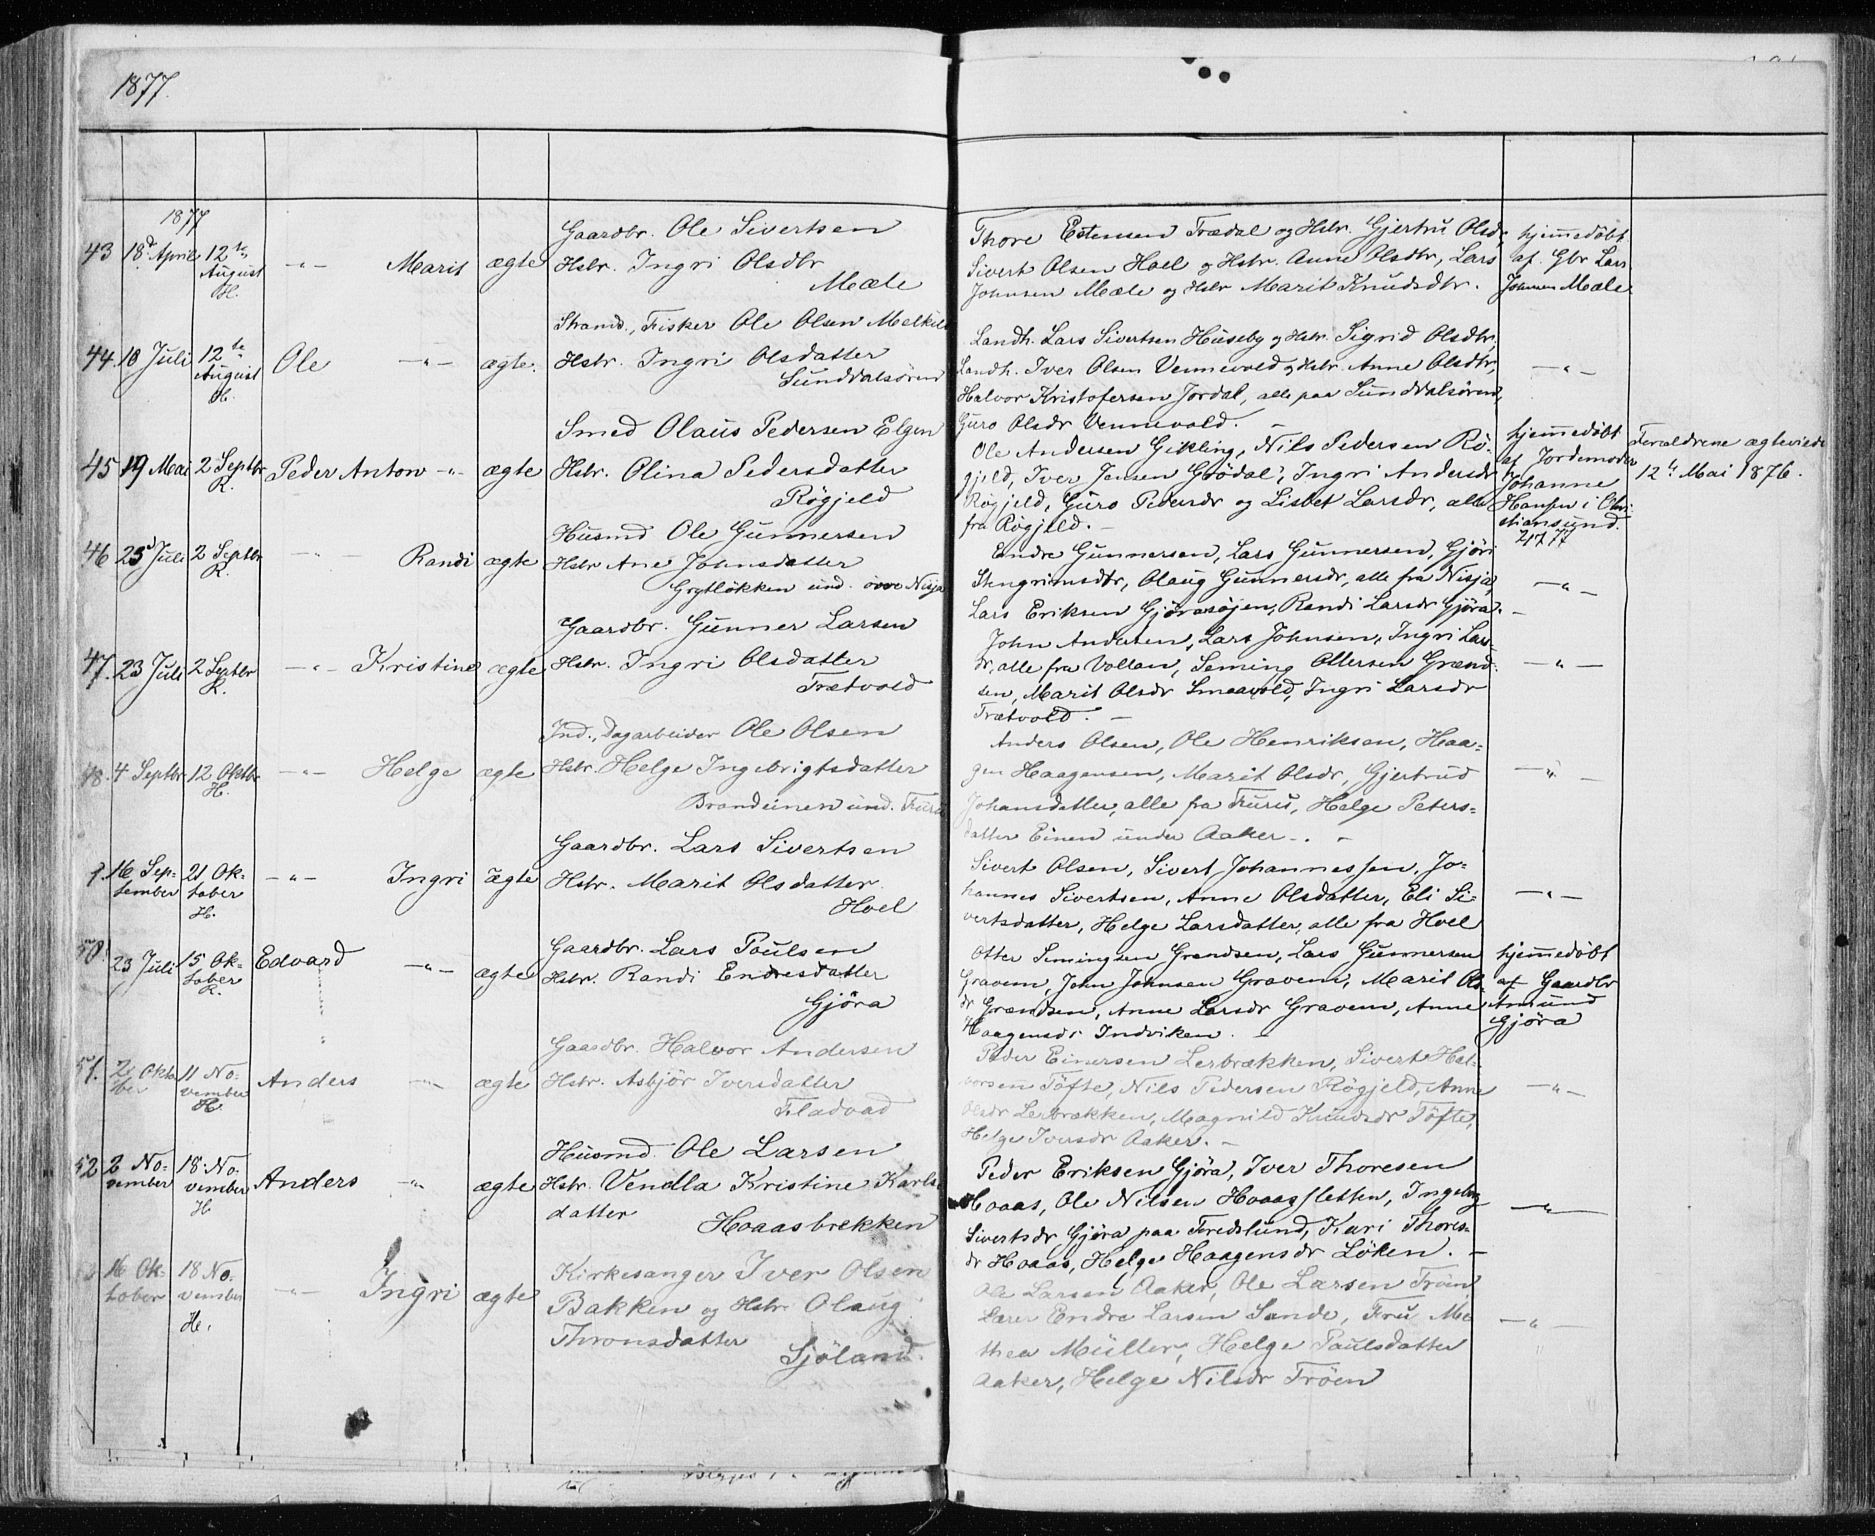 1877.
1877
43 18de April 12te August H. -"- Marit ægte
Gaardbr. Ole Sivertsen
Hstr. Ingri Olsdtr
Mæle
Thore Estensen Trædal og Hstr. Gjertru Olsdr,
Sivert Olsen Hoel og Hstr. Anne Olsdtr, Lars
Johnsen Mæle og Hstr Marit Knudsdtr.
hjemmedöbt
af. Gbr Lars
Johnsen Mæle
44. 10 Juli 12te August H. Ole -"- ægte.
Strands., Fisker Ole Olsen Melkild
Hstr. Ingri Olsdatter
Sunddalsören
Landh. Lars Sivertsen Huseby og Hstr. Sigrid Olsdtr,
Landh. Iver Olsen Vennevold og Hstr. Anne Olsdtr,
Halvor Kristofersen Jordal, alle paa Sunddalsören,
Guro Olsdr Vennevold. -
-"-
45 19 Mai 2 Septbr R. Peder Anton -"- ægte
Smed Olaus Pedersen Elgen
Hstr. Olina Pedersdatter
Rögjeld
Ole Andersen Gikling, Nils Pedersen Rö-
gjeld, Iver Jensen Grödal, Ingri Andersdr
Rögjeld, Guro Pedersdr og Lisbet Larsdr, alle
fra Rögjeld. -
hjemmedöbt
af Jordemoder
Johanne
Hansen i Chri-
stiansund.
Foræeldrene ægteviede
12te Mai 1876.
46 25 Juli 2 Septbr R. -"- Randi ægte
Husmd Ole Gunnersen
Hstr Ane Johnsdatter
Grytlökken und. övre Nisja
Endre Gunnersen, Lars Gunnersen, Gjöri
Stengrimsdtr, Olaug Gunnersdr, alle fra Nisja,
Lars Eriksen Gjörasöjen, Randi Larsdr Gjöra. -
-"-
47. 23 Juli 2 Septbr R. -"- Kristine ægte
Gaardbr. Gunner Larsen
Hstr. Ingri Olsdatter
Trætvold
John Andersen, Lars Johnsen, Ingri Lars-
dr, alle fra Vollan, Seming Ottersen Grænd-
sen, Marit Olsdr Smaavold, Ingri Larsdr
Trætvold. -
-"-
48. 4 Septbr 12 Oktbr H. -"- Helge ægte
Ind., Dagarbeider Ole Olsen
Hstr. Helge Ingebrigtsdatter
Brandeinen und. Furu
Anders Olsen, Ole Henriksen, Haa-
gen Haagensen, Marit Olsdr, Gjertrud
Johansdatter, alle fra Furu, Helge Peters-
datter Einen under Aaker. -
-"-
16 Sep-tember 21 Ok-tober H. -"- Ingri ægte
Gaardbr. Lars Sivertsen
Hstr. Marit Olsdatter
Hoel
Sivert Olsen, Sivert Johannessen, Jo-
hannes Sivertsen, Anne Olsdatter, Eli Si-
vertsdatter, Helge Larsdatter, alle fra Hoel
-"-
50. 23 Juli 15 Ok-tober R. Edvard -"- ægte
Gaardbr. Lars Poulsen
Hstr. Randi Endresdatter
Gjöra
Otter Semingsen Grendsen, Lars Gunnersen
Gravem, John Johnsen Gravem, Marit Ols-
dr Grændsen, Anne Larsdr Gravem, Anne
Haagensdr Indviken. -
hjemmedöbt
af Gaardbr
Amund
Gjöra
51. 2 Okto-ber 11 No-vember H. Anders -"- ægte
Gaardbr. Halvor Andersen
Hstr. Asbjör Iversdatter
Fladvad
Peder Einersen Lerbrækken, Sivert Hal-
vorsen Töfte, Nils Pedersen Rögjeld, Anne
Olsdr Lerbrækken, Magnild Knudsdr Töfte,
Helge Iversdr Aaker. -
-"-
52 2 No-vember 18 No-vember H Anders -"- ægte
Husmd. Ole Larsen
Hstr. Vendla Kristine Karls-
datter
Hoaasbrekken
Peder Eriksen Gjöra, Iver Thoresen
Hoaas, Ole Nilsen Hoaassletten, Ingebr
Sivertsdr Gjöra paa Fredslund, Kari Thores-
dr Hoaas, Helge Haagensdr Löken. -
-"-
16 Ok-tober 18 No-vember H. -"- Ingri ægte
Kirkesanger Iver Olsen
Bakken og Hstr Olaug
Thronsdatter
Sjöland.
Ole Larsen Aaker, Ole Larsen Tröen,
Lærer Endre Larsen Sande, Fru Ma-
thea Müller, Helge Paulsdatter
Aaker, Helge Nilsdr Tröen
-"-